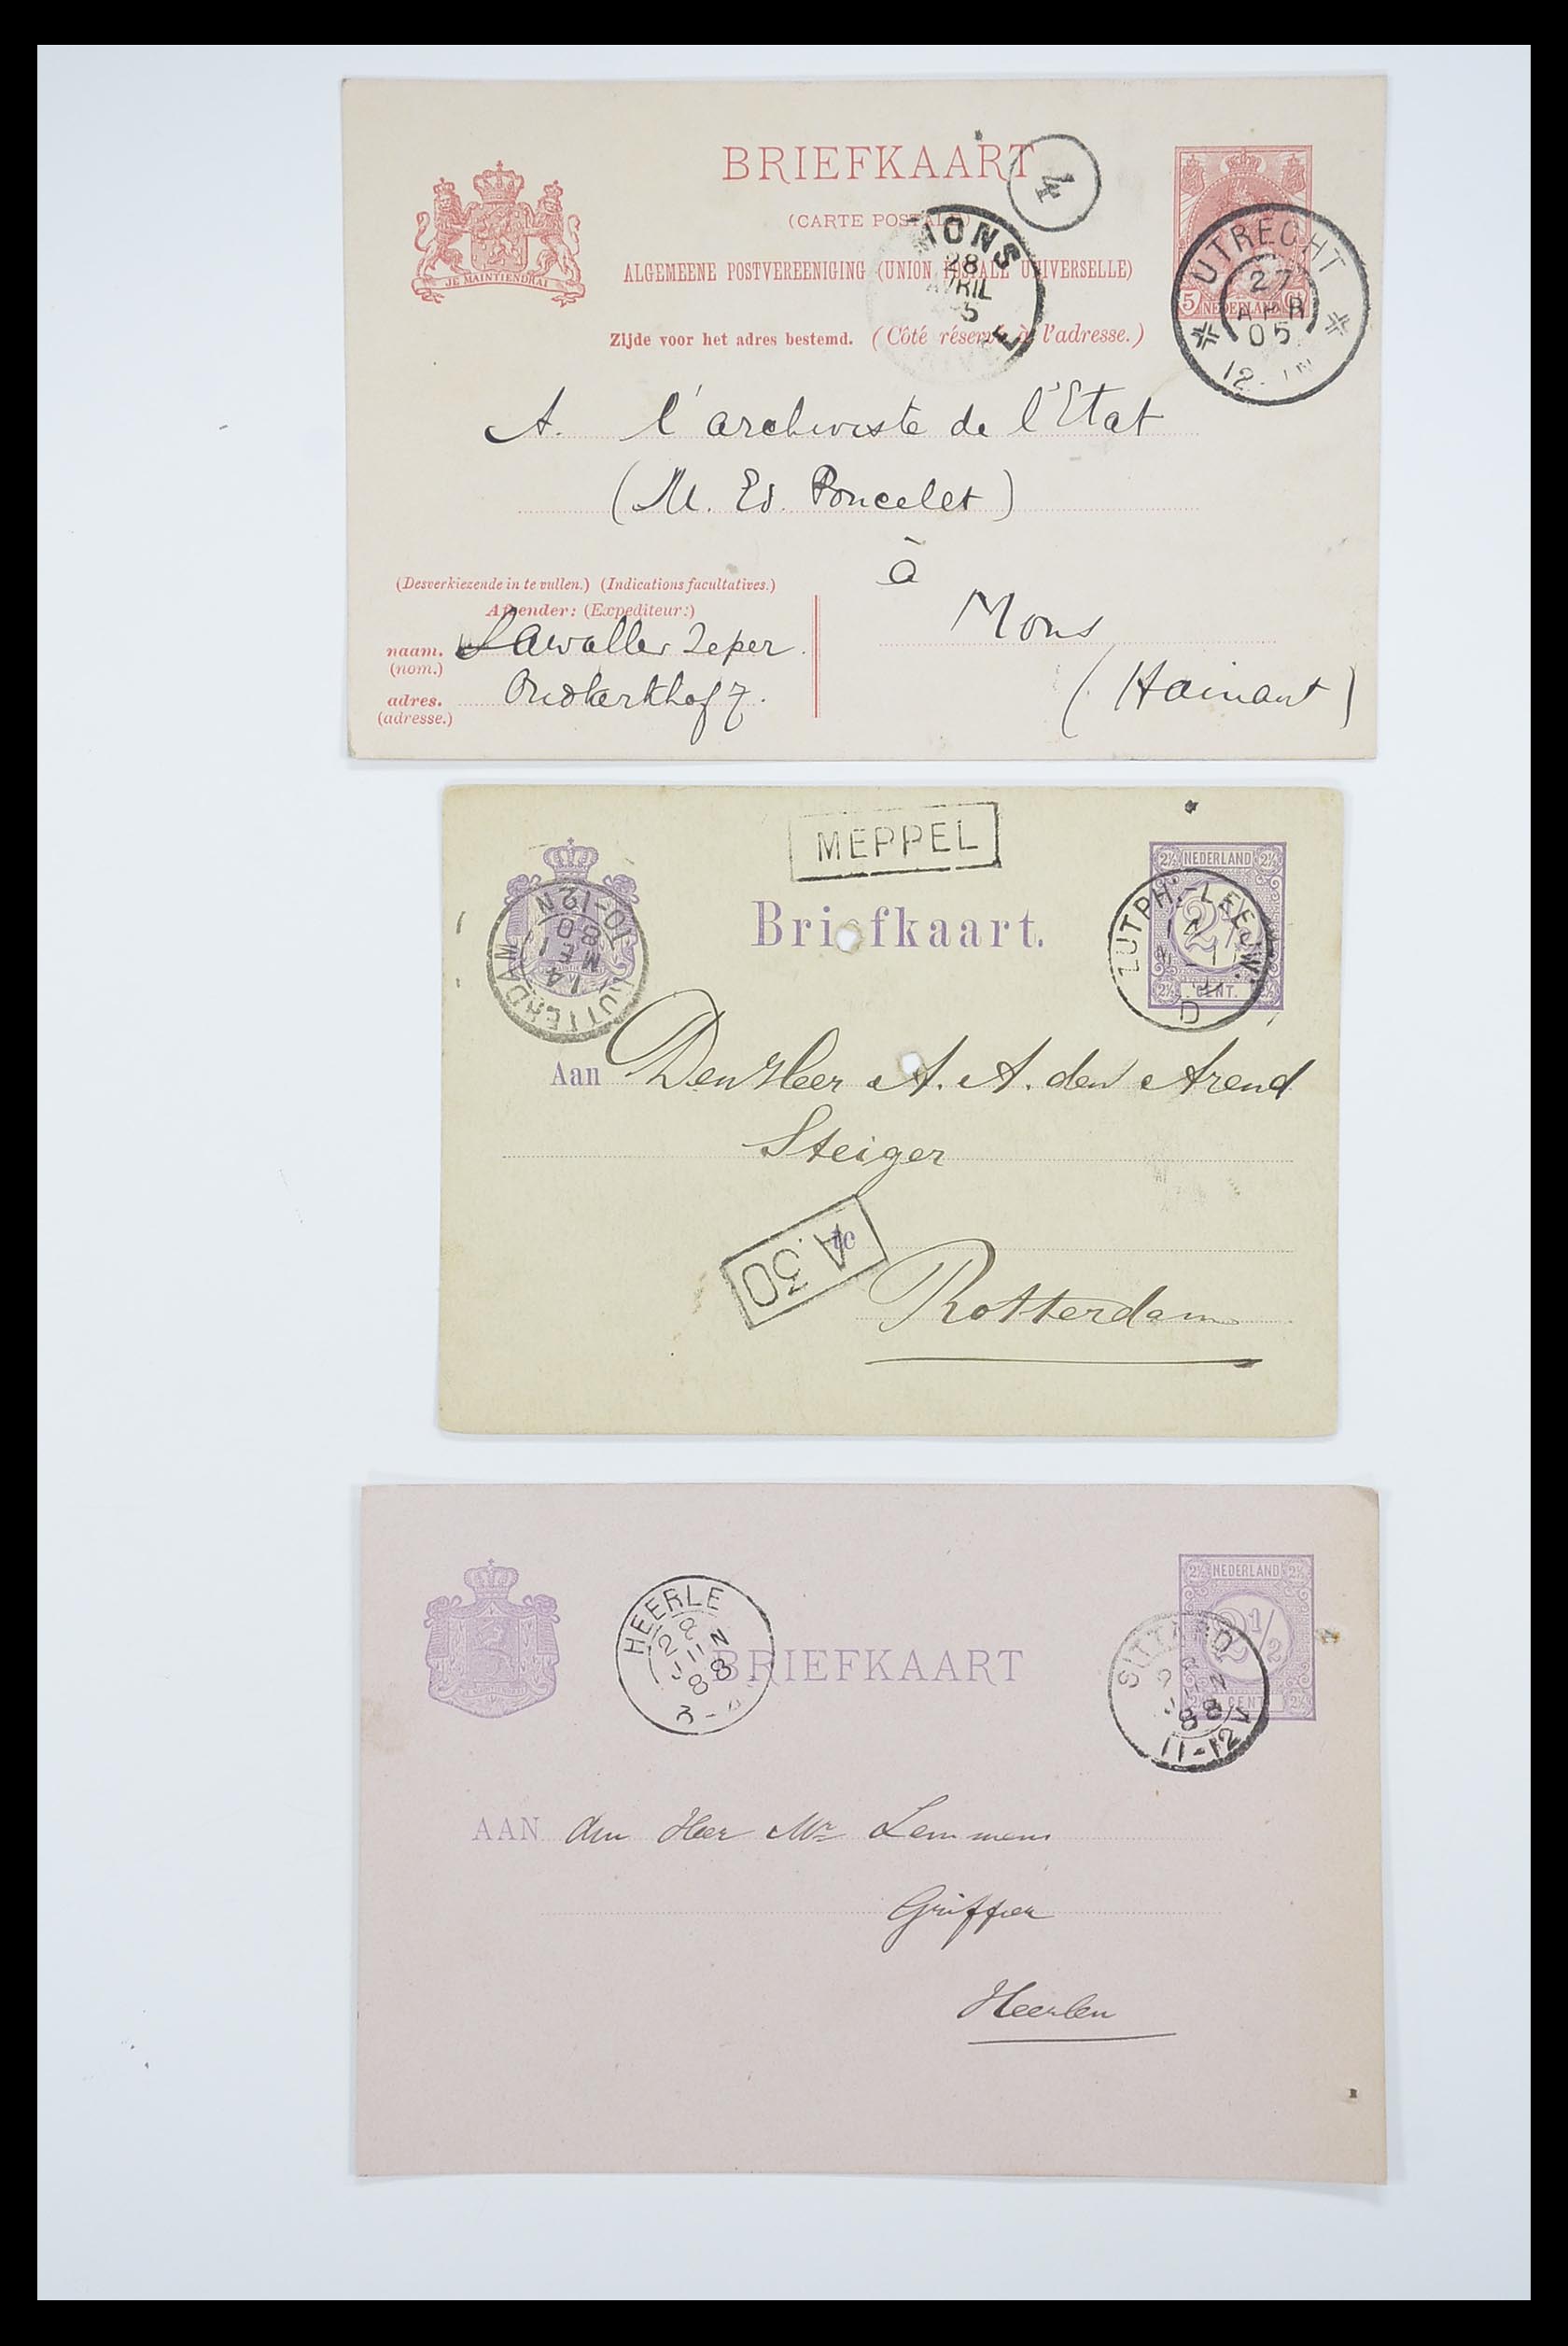 BRIEFKAART
4
(CARTE POSTALE)
ALGEMEENE POSTVEREENIGING (UNION POSTALE UNIVERSELLE)
JE MAINTIENDRAI
Zijde voor het adres bestemd. (Côté réservé à l'adresse.)
MONS
28
AVRIL
5
5 NEDERLAND
UTRECHT
27
APR
05
12-1N
A. l'archiviste de l'Etat
(M. Ed. Poncelet)
à
Mons
(Hainaut)
(Desverkiezende in te vullen.) (Indications facultatives.)
Afzender: (Expediteur:)
naam. Lawaller Zeper
(nom.)
adres. Oudkerkhof 7.
(adresse.)
MEPPEL
2½ NEDERLAND 2½
2½
2½ CENT. 2½
ZUTPH.-LEEUW.
D
ROTTERDAM
14
80
10-12N
Briefkaart.
Aan Den Heer A. A. den Arend
Steiger
te
A.30
Rotterdam
2½ NEDERLAND 2½
2½
2½ CENT. 2½
SITTARD
88
11-12V
HEERLE
88
BRIEFKAART
AAN den Heer Mr Lemmens
Griffier
Heerlen